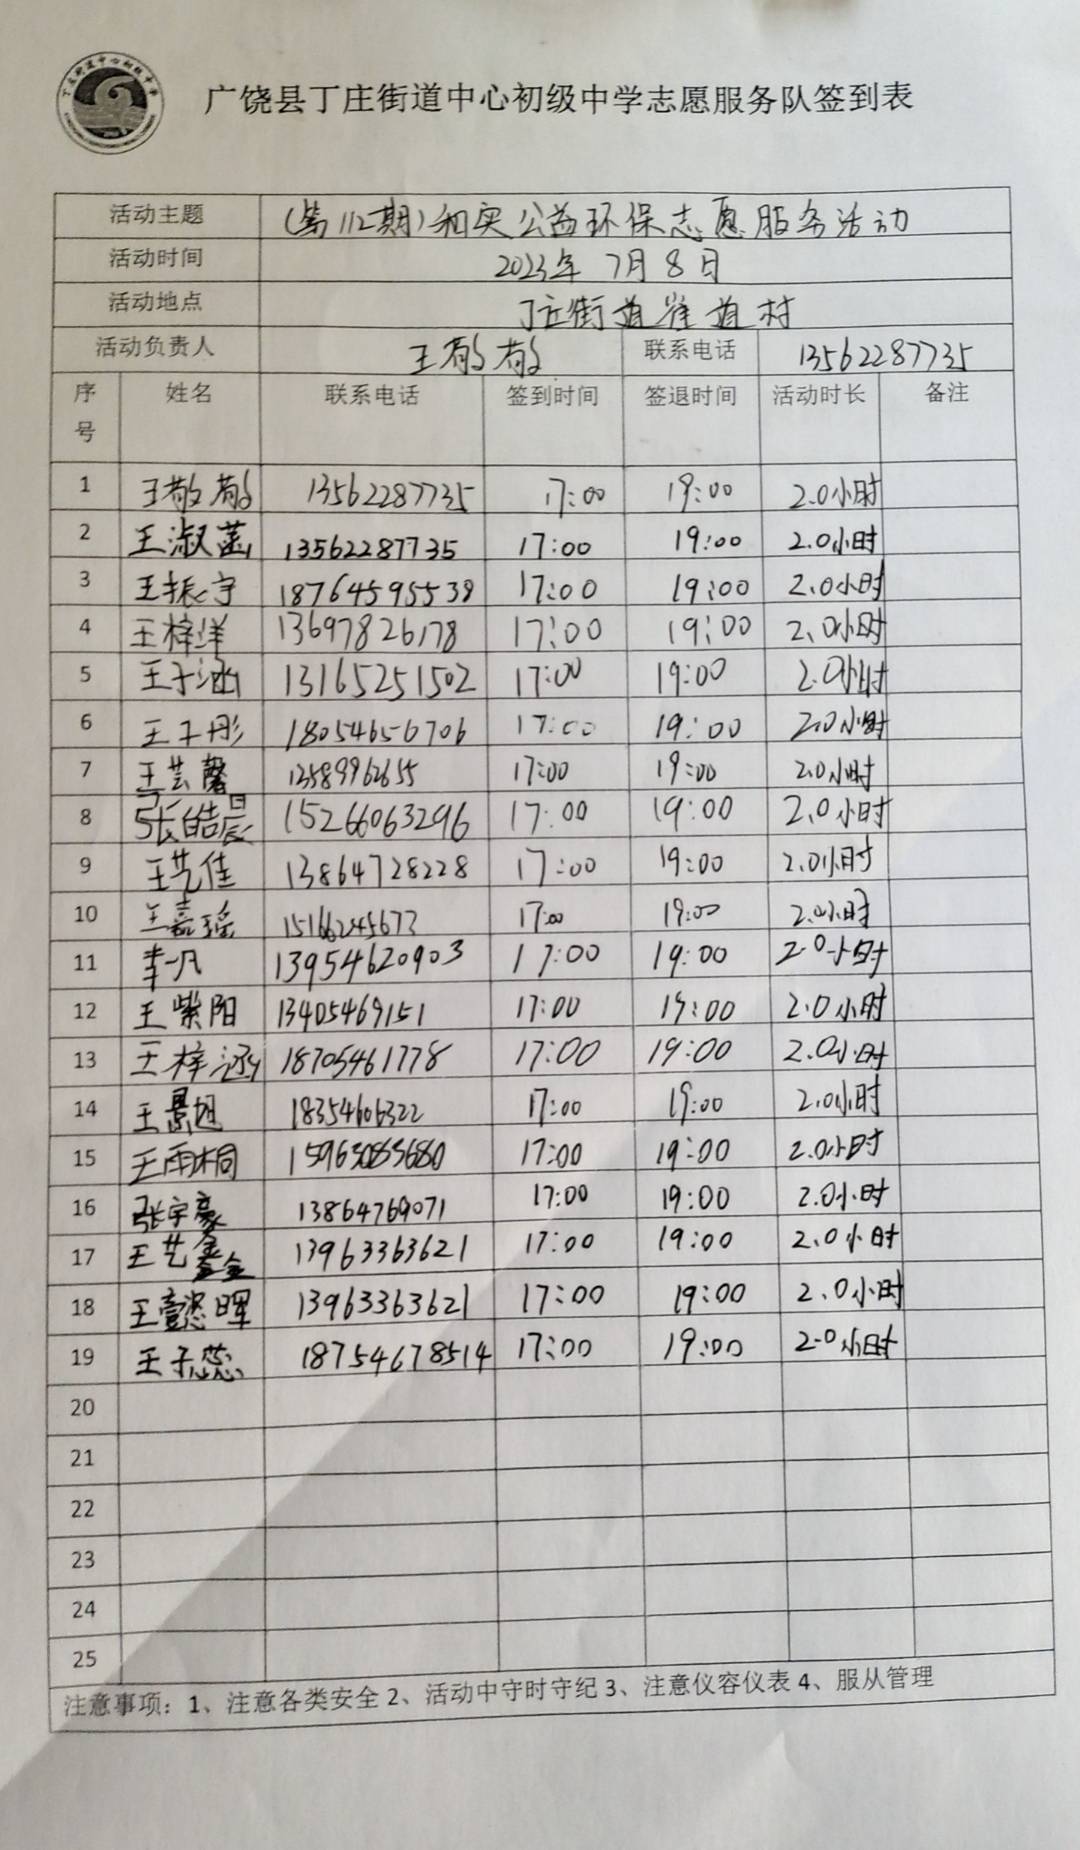 广饶县丁庄街道中心初级中学志愿服务队签到表
活动主题 (第112期)和实公益环保志愿服务活动
活动时间 2023年 7月8日
活动地点 丁庄街道崔道村
活动负责人 王敬敬 联系电话 13562287735
序号 姓名 联系电话 签到时间 签退时间 活动时长 备注
1 王敬敬 13562287735 17:00 19:00 2.0小时
2 王淑菡 13562287735 17:00 19:00 2.0小时
3 王振宇 18764595538 17:00 19:00 2.0小时
4 王梓洋 13697826178 17:00 19:00 2.0小时
5 王子涵 13165251502 17:00 19:00 2.0小时
6 王子彤 18054656706 17:00 19:00 2.0小时
7 王芸馨 13589962655 17:00 19:00 2.0小时
8 张皓晨 15266063296 17:00 19:00 2.0小时
9 王艺佳 13864728228 17:00 19:00 2.0小时
10 王嘉瑶 15166245673 17:00 19:00 2.0小时
11 李一凡 13954620903 17:00 19:00 2.0小时
12 王紫阳 13405469151 17:00 19:00 2.0小时
13 王梓涵 18705461778 17:00 19:00 2.0小时
14 王景旭 18354606322 17:00 19:00 2.0小时
15 王雨桐 17:00 19:00 2.0小时
16 张宇豪 13864769071 17:00 19:00 2.0小时
17 王艺鑫 13963363621 17:00 19:00 2.0小时
18 王懿晖 13963363621 17:00 19:00 2.0小时
19 王子蕊 18754678514 17:00 19:00 2.0小时
20
21
22
23
24
25
注意事项：1、注意各类安全 2、活动中守时守纪 3、注意仪容仪表 4、服从管理